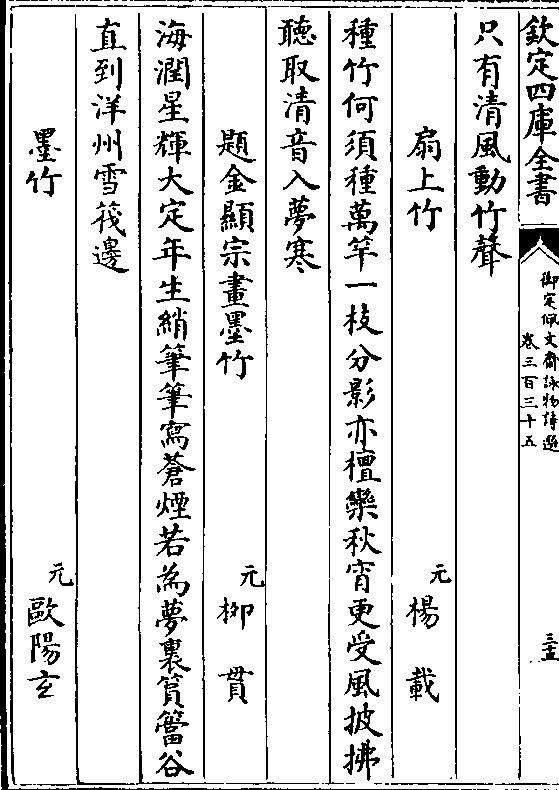 欽定四庫全書
御定佩文齋詠物詩選
卷三百三十五
三五
只有清風動竹聲
扇上竹
元
楊載
種竹何須種萬竿一枝分影亦檀欒秋宵更受風披拂
聽取清音入夢寒
題金顯宗畫墨竹
元
栁貫
海潤星輝大定年生綃筆筆寫蒼煙若為夢裏篔簹谷
直到洋州雪筏邊
墨竹
元
歐陽玄